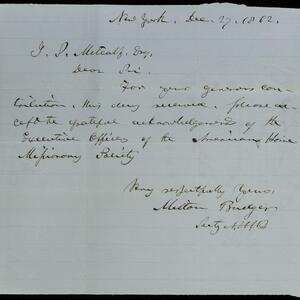 New York. Dec. 27. 1862.
J. P. Metcalf, Esq.
Dear Sir.
For your generous con-
tribution, this day received, please ac-
cept the grateful acknowledgements of the
Executive Officers of the American Home
Missionary Society
Very respectfully Yours,
Milton Badger